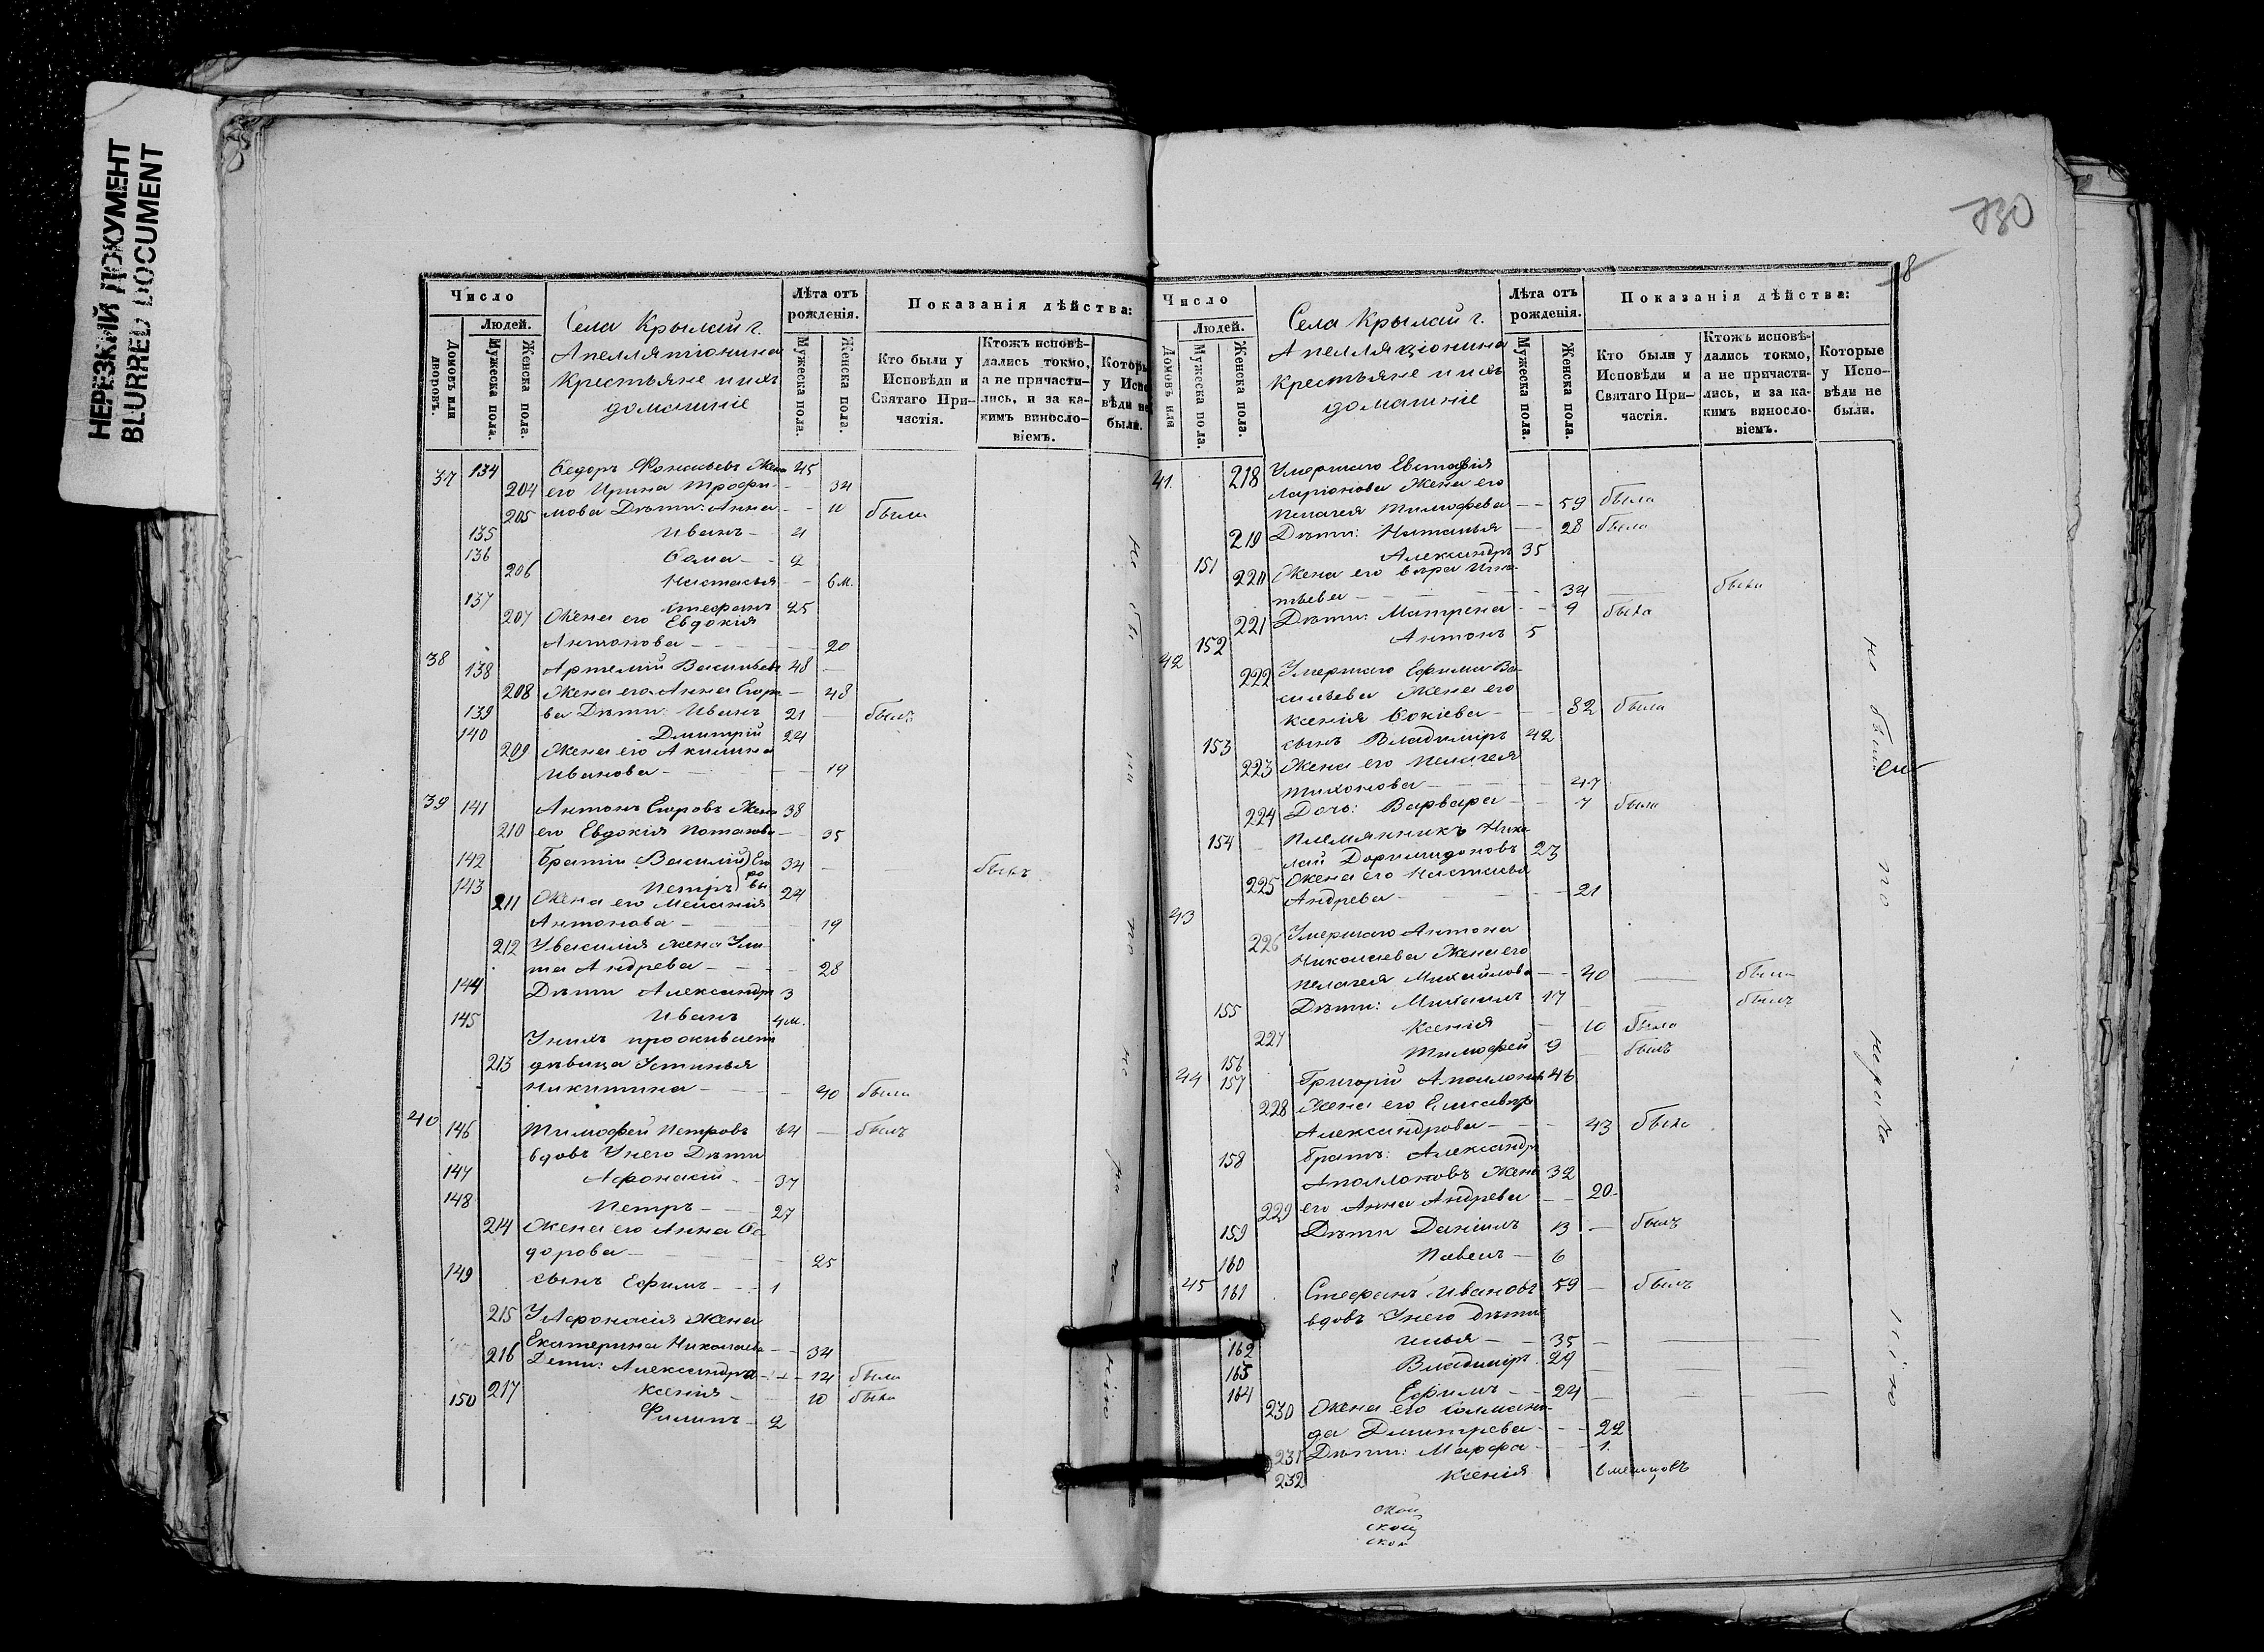 НЕРЕЗКИЙ ДОКУМЕНТ
BLURRED DOCUMENT
130
8
Число
Людей.
Домовъ или дворовъ.
Мужеска пола.
Женска пола.
Села Крылай г.
Апелляціонина
Крестьяне и ихъ
домашніе
Лѣта отъ рожденія.
Мужеска пола.
Женска пола.
Показанія дѣйства:
Кто были у Исповѣди и Святаго Причастія.
Ктожъ исповѣдались токмо, а не причастились, и за какимъ винословіемъ.
Которые у Исповѣди не были.
37 134 Ѳедоръ Жена 45
204 его Ирина Трофи- 34
205 мова Дѣти: Анна 11 была
135 Иванъ 4
136 Ѳома 2
206 Настасья 6 м.
137 Стефанъ 25
207 Жена его Евдокія
Антонова 20
38 138 Артемій Васильевъ 48
208 Жена его Анна Егоро- 48
139 ва Дѣти: Иванъ 21 былъ
140 Дмитрій 24
209 Жена его Акилина
Иванова 19
39 141 Антонъ Егоровъ Жена 38
210 его Евдокія Потапова 35
142 Братія Василій Его 34 былъ
143 Петръ ро вы 24
211 Жена его Меланія
Антонова 19
212 У Василія жена Ули
та Андрева 28
144 Дѣти Александръ 3
145 Иванъ 4 м.
У нихъ проживаетъ
213 дѣвица Устинья
Никитина 40 была
40 146 Тимофей Петровъ 64 былъ
вдовъ У него Дѣти
147 Афонасій 37
148 Петръ 27
214 Жена его Анна Ѳе
дорова 25
149 сынъ Ефимъ 1
215 У Афонасія Жена
Екатерина Николаева 34
216 Дети: Александра 14 была
217 Ксенія 10 была
150 Филипъ 2
Число
Людей.
Домовъ или
Мужеска пола.
Женска пола.
Села Крылай г.
Апелляціонина
Крестьяне и ихъ
домашніе
Лѣта отъ рожденія.
Мужеска пола.
Женска пола.
Показанія дѣйства:
Кто были у Исповѣди и Святаго Причастія.
Ктожъ исповѣдались токмо, а не причастились, и за какимъ винословіемъ.
Которые у Исповѣди не были.
41. 218 Умершаго Евстафія
Ларіонова Жена его
Пелагея Тимофева 59 была
219 Дѣти: Наталья 28 была
151 Александръ 35
220 Жена его Вѣра Игна-
тьева 34 была
221 Дѣти: Матрена 9 была
152 Антонъ 5
42 222 Умершаго Ефима Ва-
сильева Жена его
Ксенія Фокіева 82 была
153 сынъ Владимиръ 42
223 Жена его Пелагея
Тихонова 47
224 Дочь: Варвара 7 была
154 Племянникъ Нико
лай Доримидоновъ 23
225 Жена его Настасья
Андрева 21
43
226 Умершаго Антона
Николаева Жена его
Пелагея Михайлова 40 была
155 Дѣти: Михаилъ 17 былъ
227 Ксенія 10 была
156 Тимофей 9 былъ
44 157 Григорій Аполоновъ 46
228 Жена его Елисавѣта
Александрова 43 была
158 братъ: Александръ
Аполлоновъ Жена 32
229 его Анна Андрева 20
159 Дѣти Даніилъ 13 былъ
160 Павелъ 6
45 161 Стефанъ Ивановъ 59 былъ
вдовъ У него дѣти
162 Илья 35
163 Владиміръ 29
164 Ефимъ 24
230 Жена его
да Дмитрева 22
231 Дѣти: Марфа 1.
232 Ксенія 6 месяцовъ